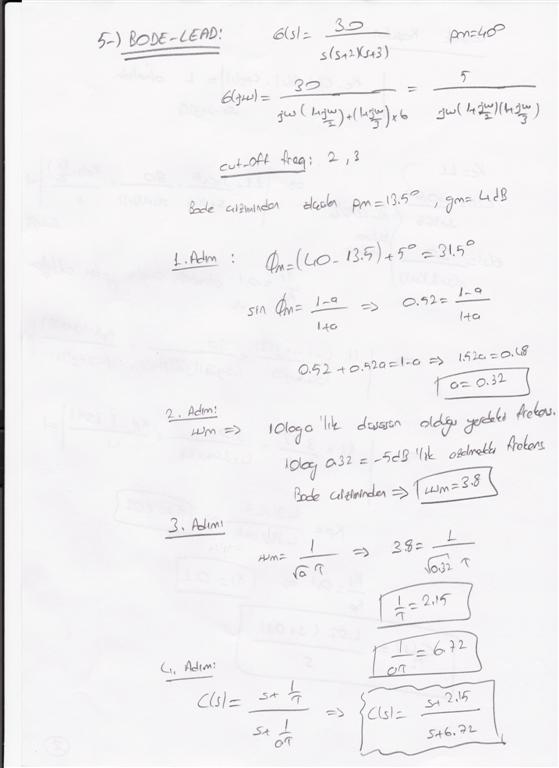 5-) BODE-LEAD: G(s) = 30 / s(s+2)(s+3) pm=40°
G(jw) = 30 / jw(1+jw/2)+(1+jw/3)×6 = 5 / jw(1+jw/2)(1+jw/3)
cut-off freq: 2, 3
Bode çiziminden pm=13.5°, gm=4dB
1. Adım: Φm=(40-13.5)+5°=31.5°
sin Φm = 1-a / 1+a => 0.52 = 1-a / 1+a
0.52+0.52a=1-a => 1.52a=0.48
a=0.32
2. Adım:
wm => 10loga'lık olduğu yerdeki frekans.
10log 0.32 = -5dB'lik frekans
Bode çiziminden => wm=3.8
3. Adım:
wm = 1 / √a T => 3.8 = 1 / √0.32 T
1/T = 2.15
1/aT = 6.72
4. Adım:
C(s) = s+1/T / s+1/aT => C(s) = s+2.15 / s+6.72